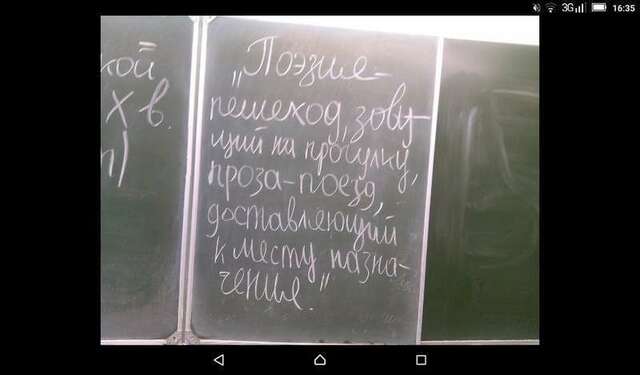 3G
16:35
кой
X в.
„Поэзия-
пешеход, зову-
щий на прогулку,
проза-поезд,
доставляющий
к месту назна-
чения."